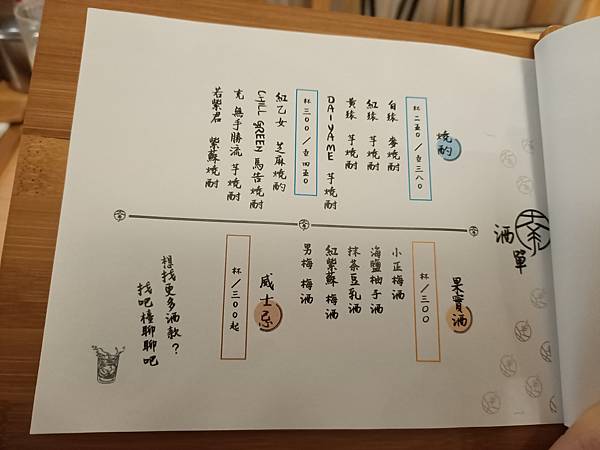 酒單
燒酌
杯 二五〇/壺 三八〇
白緣 麥燒酎
紅緣 芋燒酎
黃緣 芋燒酎
DAIYAME 芋燒酎
杯 三〇〇/壺 四五〇
紅乙女 芝麻燒酌
CHILL GREEN 馬告燒酎
克 無手勝流 芋燒酎
若紫君 紫蘇燒酎
果實酒
杯/三〇〇
小正梅酒
海鹽柚子酒
抹茶豆乳酒
紅紫蘇 梅酒
男梅 梅酒
威士忌
杯/三〇〇起
想找更多酒款?
找吧檯聊聊吧